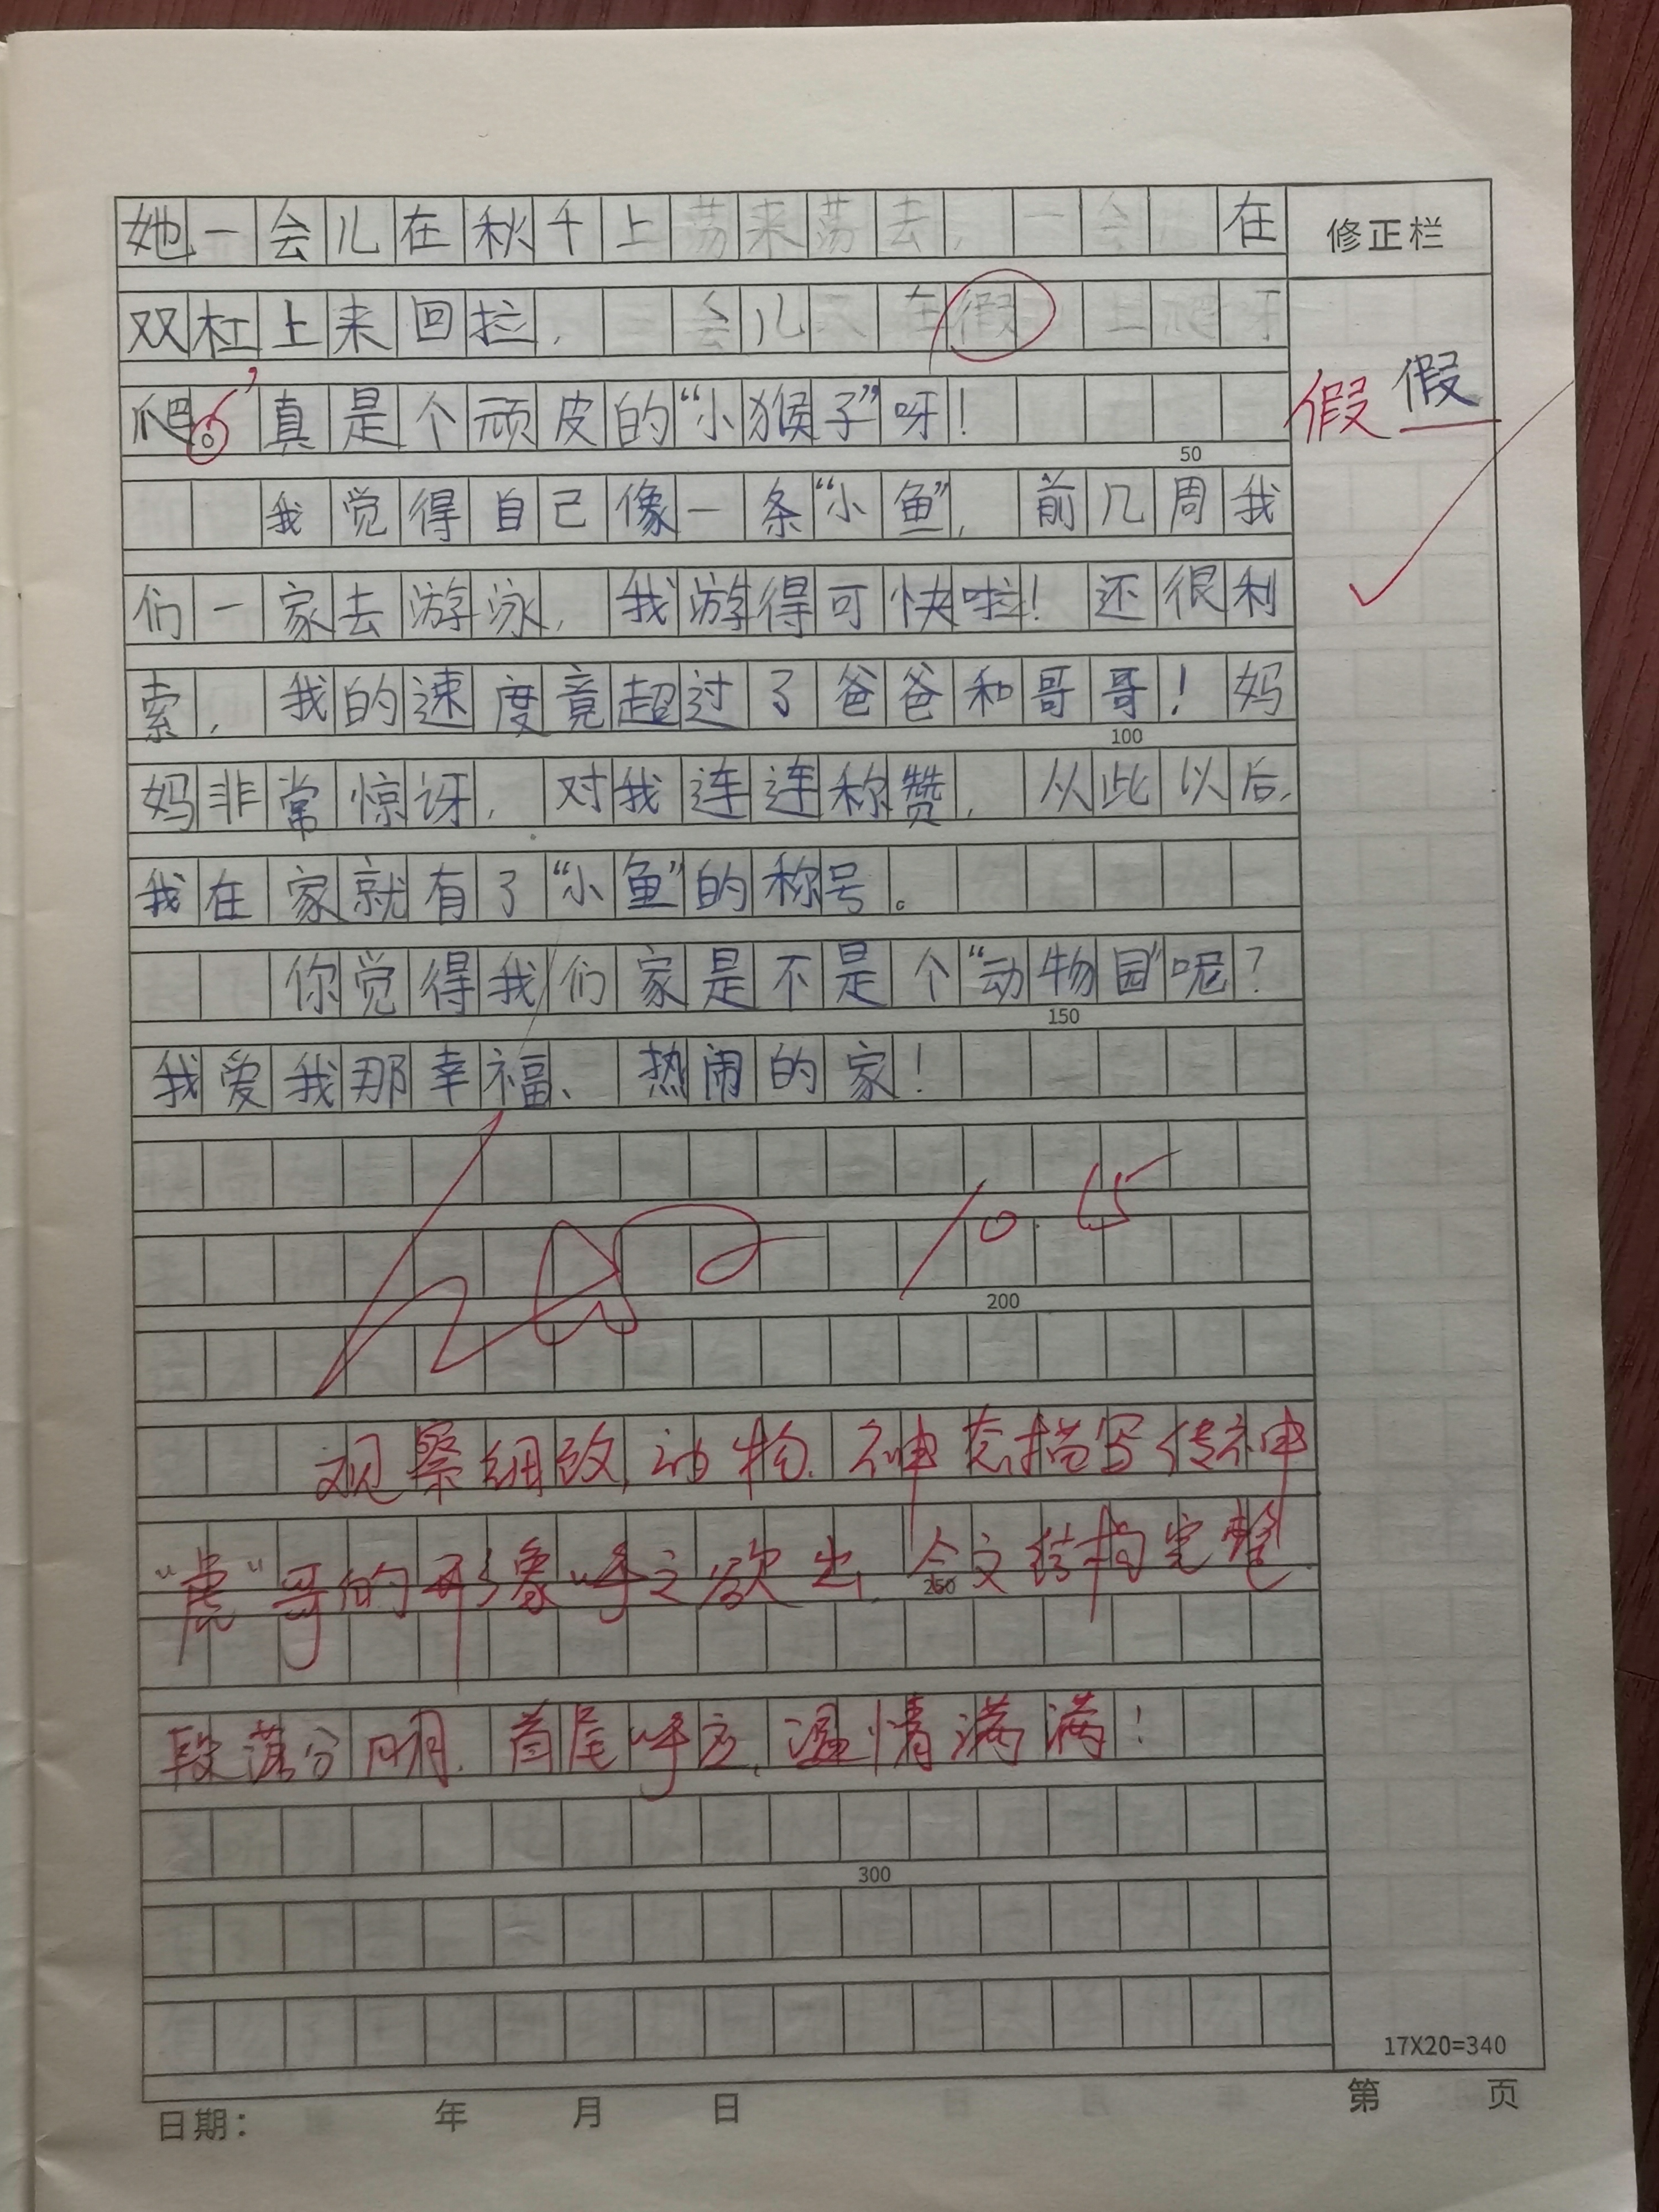 她一会儿在秋千上荡来荡去，一会儿在
修正栏
双杠上来回拉，一会儿又在假山上爬呀
假 假
爬。，真是个顽皮的“小猴子”呀！
50
我觉得自己像一条“小鱼”，前几周我
们一家去游泳，我游得可快啦！还很利
索，我的速度竟超过了爸爸和哥哥！妈
100
妈非常惊讶，对我连连称赞，从此以后，
我在家就有了“小鱼”的称号。
你觉得我们家是不是个“动物园”呢？
150
我爱我那幸福、热闹的家！
10.15
200
观察细致，动物、神态描写传神
“虎”哥的形象呼之欲出，全文结构完整
250
段落分明，首尾呼应，温情满满！
300
17X20=340
日期： 年 月 日 第 页